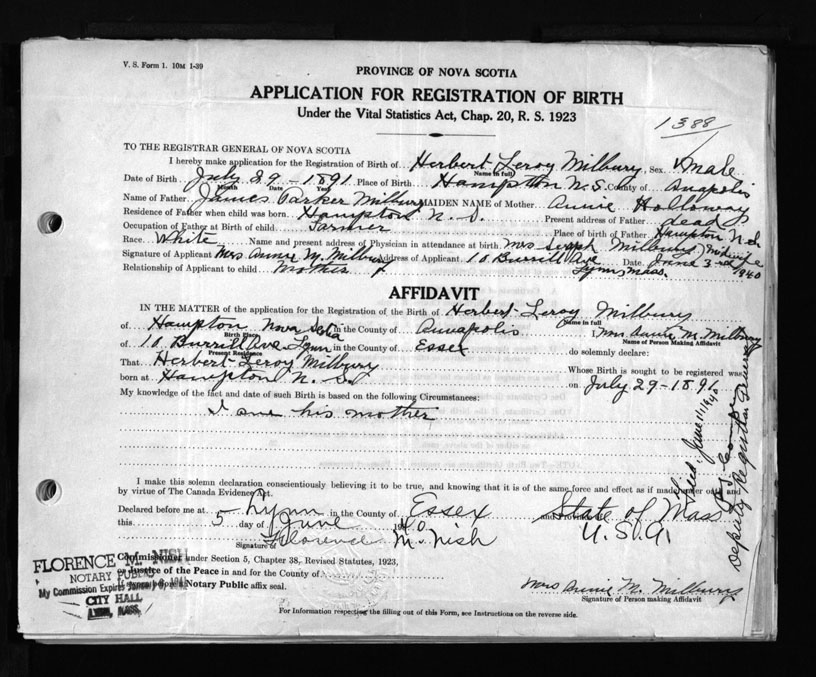 V. S. Form 1. 10M 1-39
PROVINCE OF NOVA SCOTIA
APPLICATION FOR REGISTRATION OF BIRTH
Under the Vital Statistics Act, Chap. 20, R. S. 1923
1388
TO THE REGISTRAR GENERAL OF NOVA SCOTIA
I hereby make application for the Registration of Birth of Herbert Leroy Milbury, Sex Male
Name in full
Date of Birth July 29 - 1891 Place of Birth Hampton N.S. County of Anapolis
Month Date Year
Name of Father James Parker Milbury MAIDEN NAME of Mother Annie Holloway
Residence of Father when child was born Hampton N. S. Present address of Father Dead
Occupation of Father at Birth of child Farmer Place of birth of Father Hampton
Race White Name and present address of Physician in attendance at birth Mrs Milbury Midwife
Signature of Applicant Mrs Annie M. Milbury Address of Applicant 10 Burrill Ave Date June 3rd 1940
Lynn, Mass.
Relationship of Applicant to child Mother
AFFIDAVIT
IN THE MATTER of the application for Registration of the Birth of Herbert Leroy Milbury
Name in full
of Hampton Nova Scotia in the County of Annapolis Mrs Annie M. Milbury
Birth Place
Name of Person Making Affidavit
of 10 Burrill Ave Lynn in the County of Essex do solemnly declare:
Present Residence
That Herbert Leroy Milbury Whose Birth is sought to be registered was
born at Hampton N. S. on July 29-1891
My knowledge of the fact and date of such Birth is based on the following Circumstances:
I am his mother
I make this solemn declaration conscientiously believing it to be true, and knowing that it is of the same force and effect as if made under oath and
by virtue of The Canada Evidence Act.
Declared before me at Lynn in the County of Essex and State of Mass
this 5 day of June 1940 U.S.A.
Signature of Florence M. Nish
Commissioner under Section 5, Chapter 38, Revised Statutes, 1923,
or Justice of the Peace in and for the County of
Notary Public affix seal.
FLORENCE M. NISH
NOTARY PUBLIC
My Commission Expires
CITY HALL
LYNN, MASS.
Mrs Annie M. Milbury
Signature of Person making Affidavit
For Information respecting the filling out of this Form, see Instructions on the reverse side.
Filed, June 11/1940
Deputy Registrar General